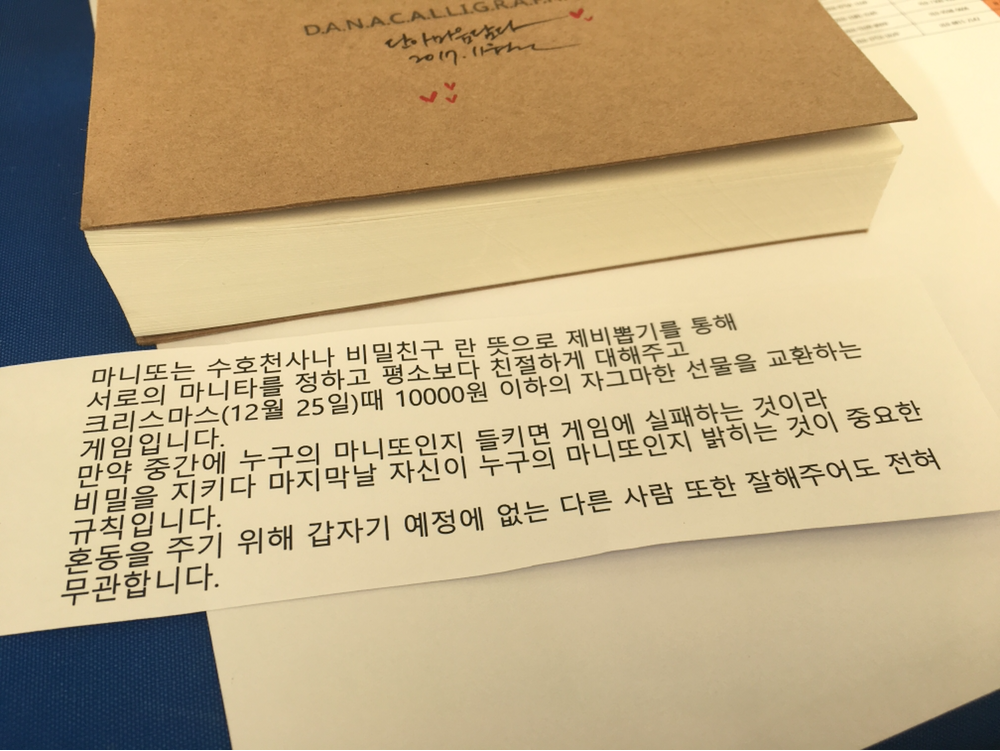 D.A.N.A.C.A.L.L.I.G.R.A.P
단아마음담다
2017. 11
마니또는 수호천사나 비밀친구 란 뜻으로 제비뽑기를 통해
서로의 마니타를 정하고 평소보다 친절하게 대해주고
크리스마스(12월 25일)때 10000원 이하의 자그마한 선물을 교환하는
게임입니다.
만약 중간에 누구의 마니또인지 들키면 게임에 실패하는 것이라
비밀을 지키다 마지막날 자신이 누구의 마니또인지 밝히는 것이 중요한
규칙입니다.
혼동을 주기 위해 갑자기 예정에 없는 다른 사람 또한 잘해주어도 전혀
무관합니다.